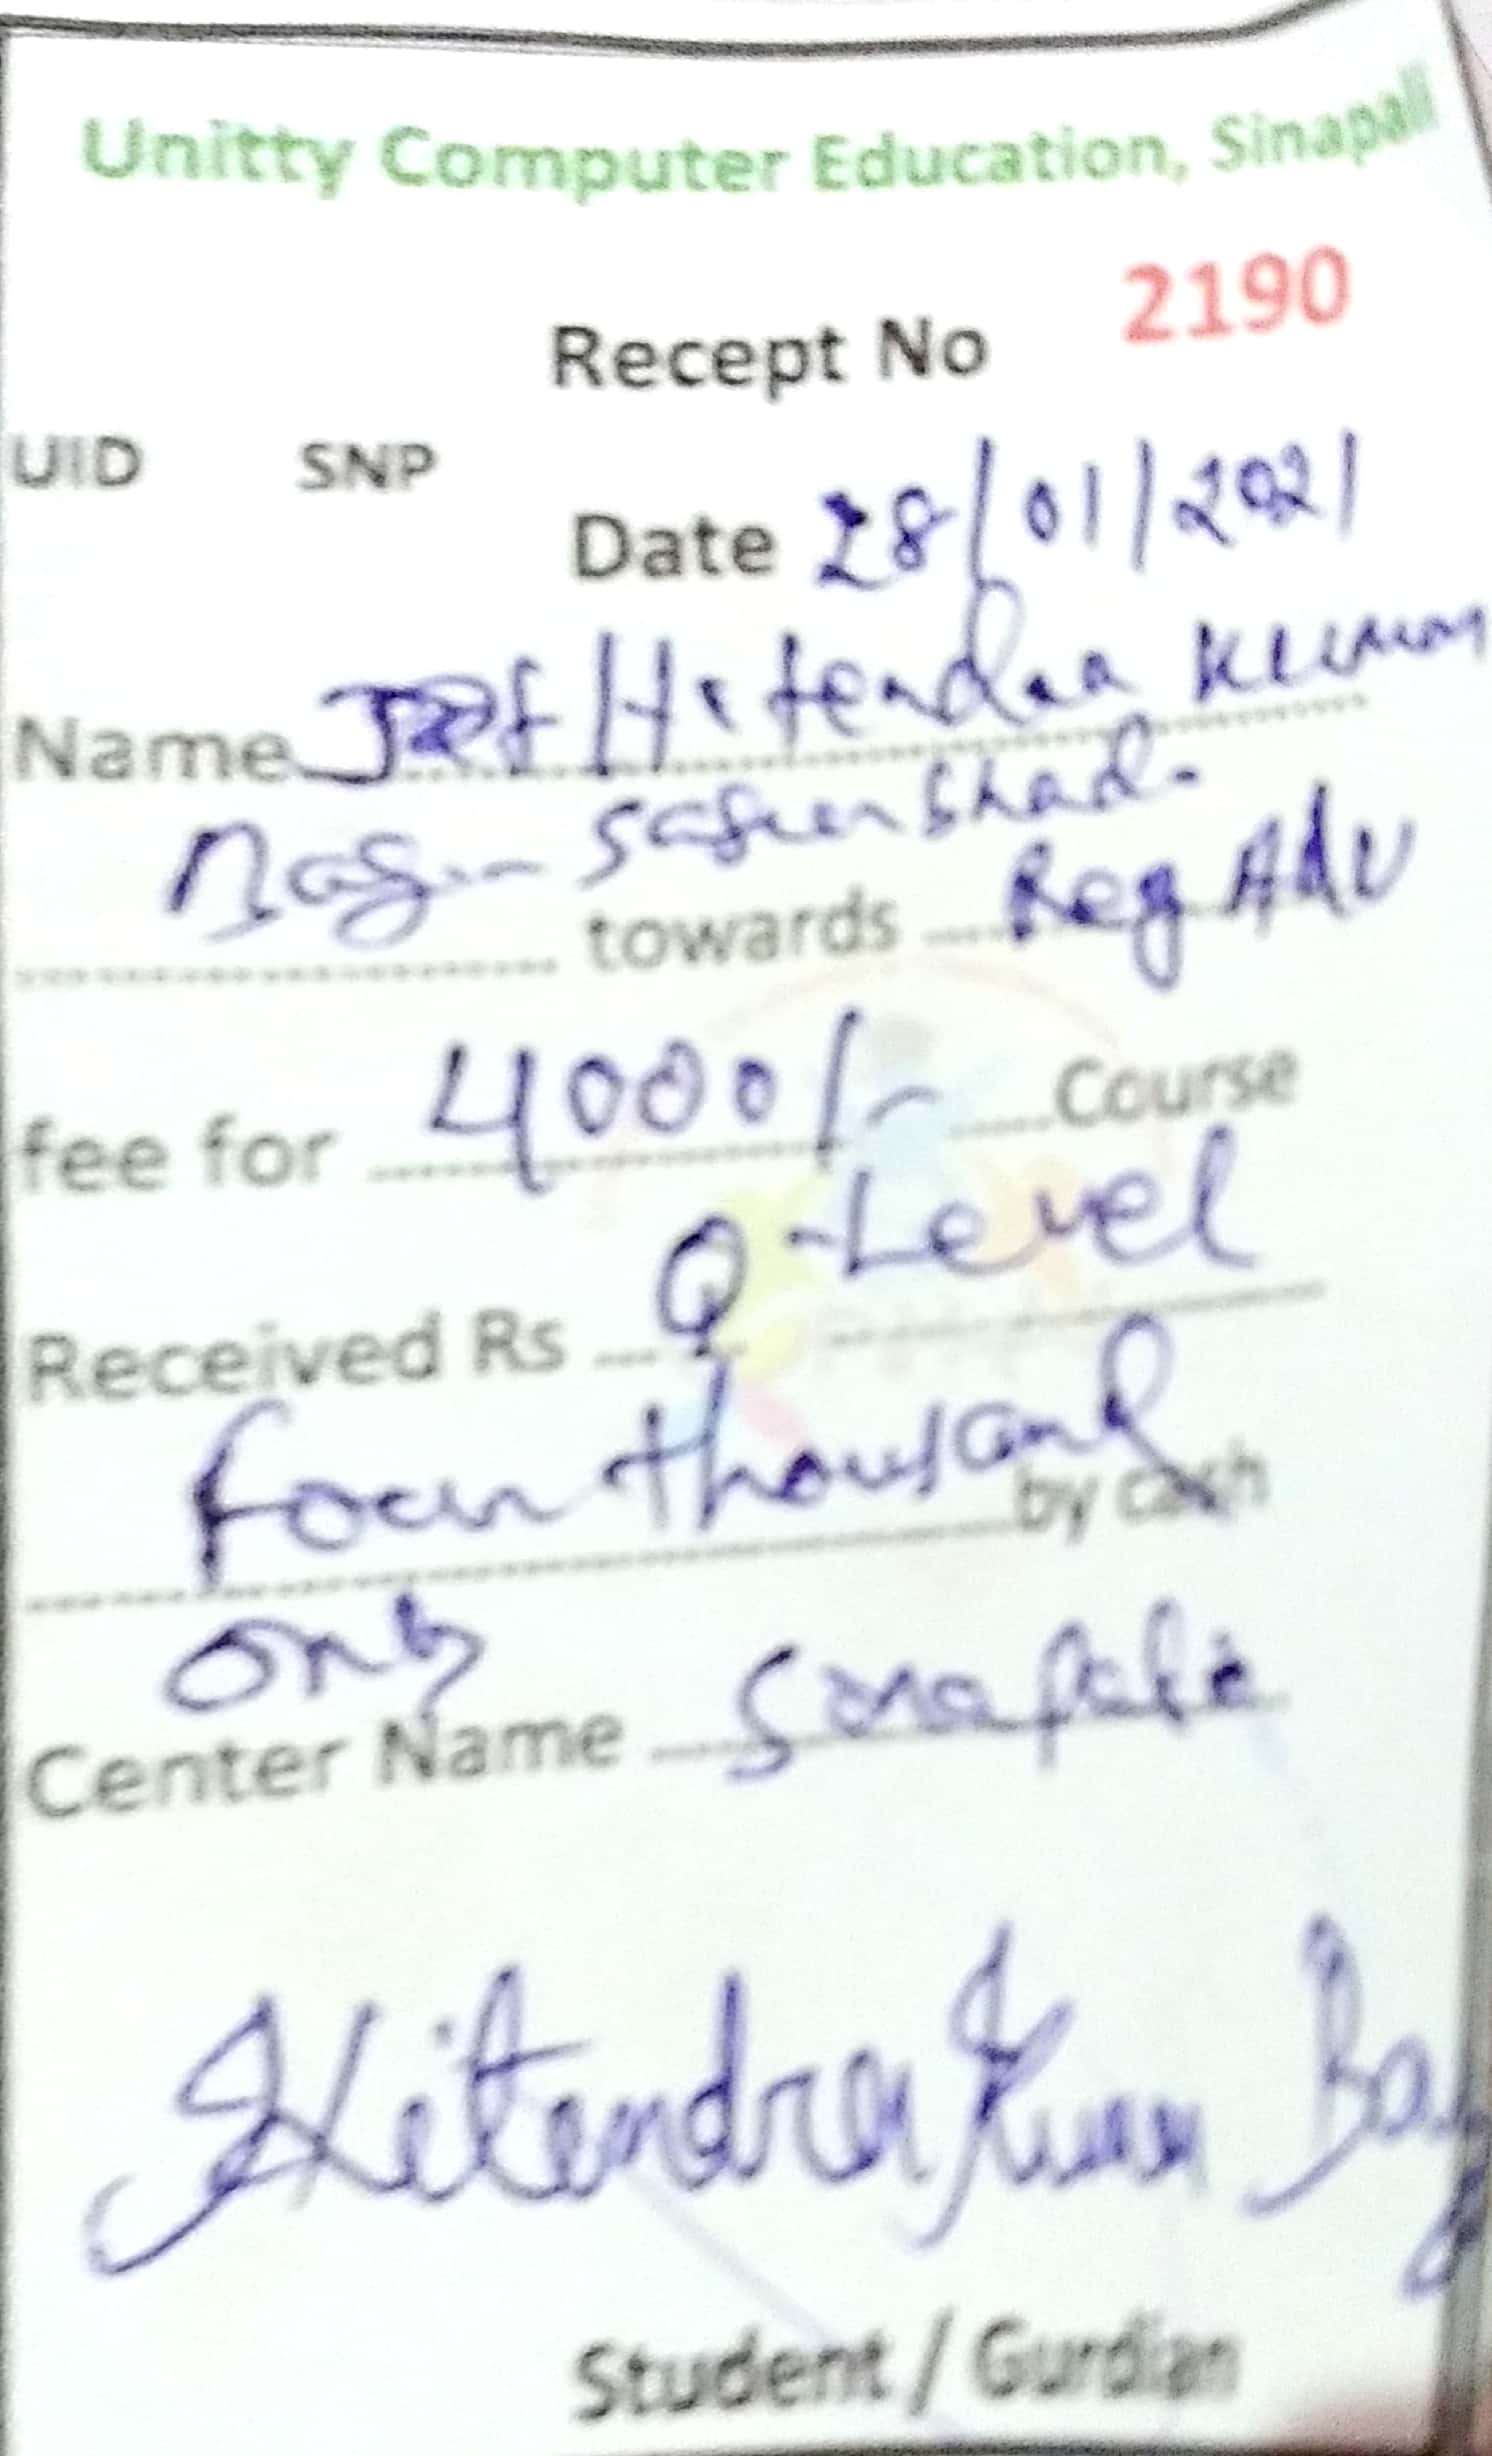 Unitty Computer Education, Sinapali
2190
Recept No
UID SNP
Date 28/01/2021
Name Hitendra Kumar
towards Reg Adv
fee for 4000/- Course
O-Level
Received Rs
four thousand by cash
only
Center Name Sinapali
Hitendra Kumar Bag
Student / Gurdian